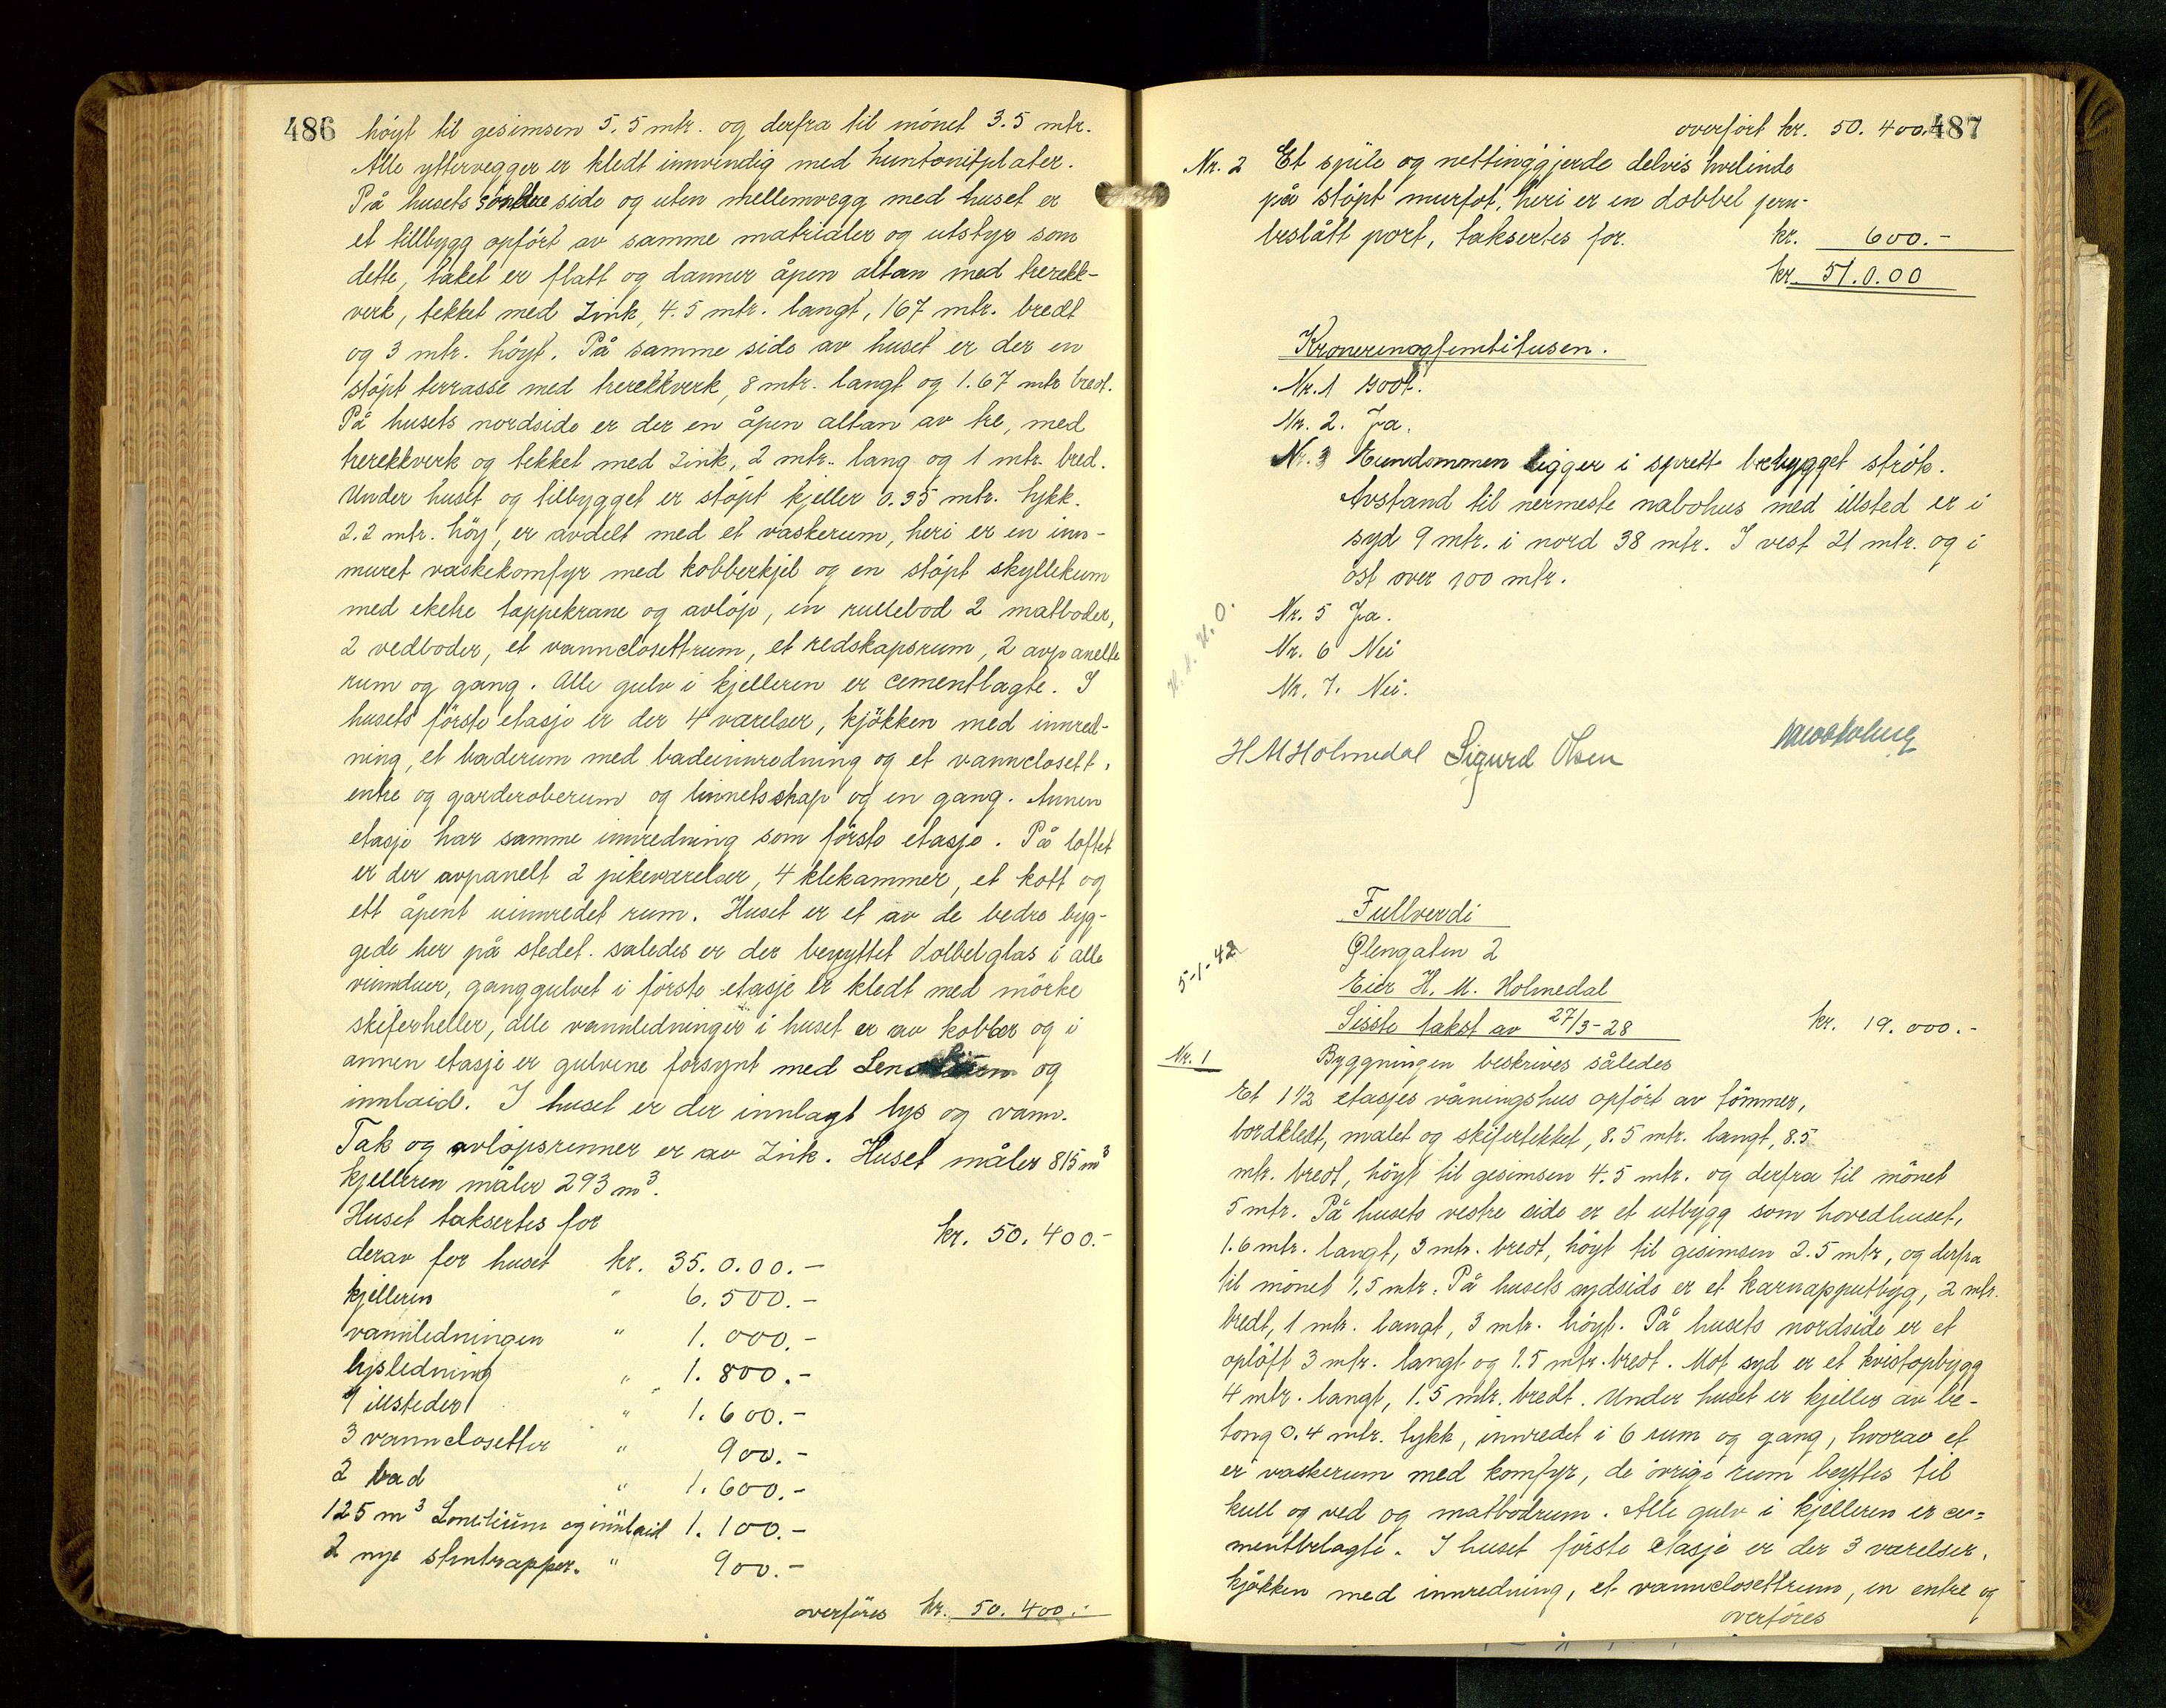 486
höyt til gesimsen 5.5 mtr. og derfra til mönet 3.5 mtr.
Alle yttervegger er kledt innvendig med huntonitplater.
På husets söndre side og uten mellemvegg med huset er
et tillbygg opfört av samme matrialer og utstyr som
dette, taket er flatt og danner åpen altan med trerekk-
verk, tekket med Zink, 4.5 mtr. langt, 167 mtr. bredt
og 3 mtr. höyt. På samme side av huset er der en
stöpt terrasse med trerekkverk, 8 mtr. langt og 1.67 mtr bredt.
På husets nordside er der en åpen altan av tre, med
trerekkverk og tekket med Zink, 2 mtr. lang og 1 mtr. bred.
Under huset og tilbygget er stöpt kjeller 0.35 mtr. tykk.
2.2 mtr. höy, er avdelt med et vaskerum, heri er en inn-
muret vaskekomfyr med kobberkjel og en stöpt skyllekum
med eketre tappekrane og avlöp, en rullebod 2 matboder,
2 vedboder, et vannclosettrum, et redskapsrum, 2 avpanelte
rum og gang. Alle gulv i kjelleren er cementlagte. I
husets förste etasje er der 4 værelser, kjökken med innred-
ning, et baderum med badeinnredning og et vannclosett,
entre og garderoberum og linnetsskap og en gang. Annen
etasje har samme innredning som förste etasje. På loftet
er der avpanelt 2 pikeværelser, 4 klekammer, et kott og
ett åpent uinnredet rum. Huset er et av de bedre byg-
gede her på stedet. saledes er der benyttet dobbelglas i alle
vinnduer, ganggulvet i förste etasje er kledt med mörke
skiferheller, alle vannledninger i huset er av kobber og i
annen etasje er gulvene forsynt med og
innlaid. I huset er der innlagt lys og vann.
Tak og avlöpsrenner er av Zink. Huset måler 815 m³
kjelleren måler 293 m³.
Huset taksertes for kr. 50.400.-
derav for huset kr. 35.0.00.-
kjelleren " 6.500.-
vannledningen " 1.000.-
lysledning " 1.800.-
9 illsteder " 1.600.-
3 vannclosetter " 900.-
2 bad " 1.600.-
125 m³ og innlaid 1.100.-
2 nye stentrapper. " 900.-
overföres kr. 50.400.-
487
overfört kr. 50.400.-
Nr. 2 Et spile og nettinggjerde delvis hvelinde
på stöpt murfot, heri er en dobbel jern-
beslått port, taksertes for. kr. 600.-
kr. 51.0.00
Kronerenogfemtitusen.
Nr. 1 godt.
Nr. 2. Ja.
Nr. 3 Eiendommen ligger i sprett bebygget strök.
Avstand til nermeste nabohus med illsted er i
syd 9 mtr. i nord 38 mtr. I vest 21 mtr. og i
öst over 100 mtr.
Nr. 5 Ja.
Nr. 6 Nei
Nr. 7. Nei.
H M Holmedal Sigurd Olsen
Fullverdi
Glengaten 2
5-1-42
Eier H. M. Holmedal
Sisste takst av 27/3-28 kr. 19.000.-
Nr. 1 Byggningen beskrives således
Et 1 1/2 etasjes våningshus opfört av tömmer,
bordkledt, malet og skifertekket, 8.5 mtr. langt, 8.5
mtr. bredt, höyt til gesimsen 4.5 mtr. og derfra til mönet
5 mtr. På husets vestre side er et utbygg som hovedhuset,
1.6 mtr. langt, 3 mtr. bredt, höyt til gesimsen 2.5 mtr, og derfra
til mönet 1.5 mtr. På husets sydside er et karnapputbyg, 2 mtr.
bredt, 1 mtr. langt, 3 mtr. höyt. På husets nordside er et
oplöft 3 mtr. langt og 1.5 mtr. bredt. Mot syd er et kvistopbygg
4 mtr. langt, 1.5 mtr. bredt. Under huset er kjeller av be-
tong 0.4 mtr. tykk, innredet i 6 rum og gang, hvorav et
er vaskerum med komfyr, de övrige rum beyttes til
kull og ved og matbodrum. Alle gulv i kjelleren er ce=
mentbelagte. I huset förste etasje er der 3 værelser,
kjökken med innredning, et vannclosettrum, en entre og
overföres